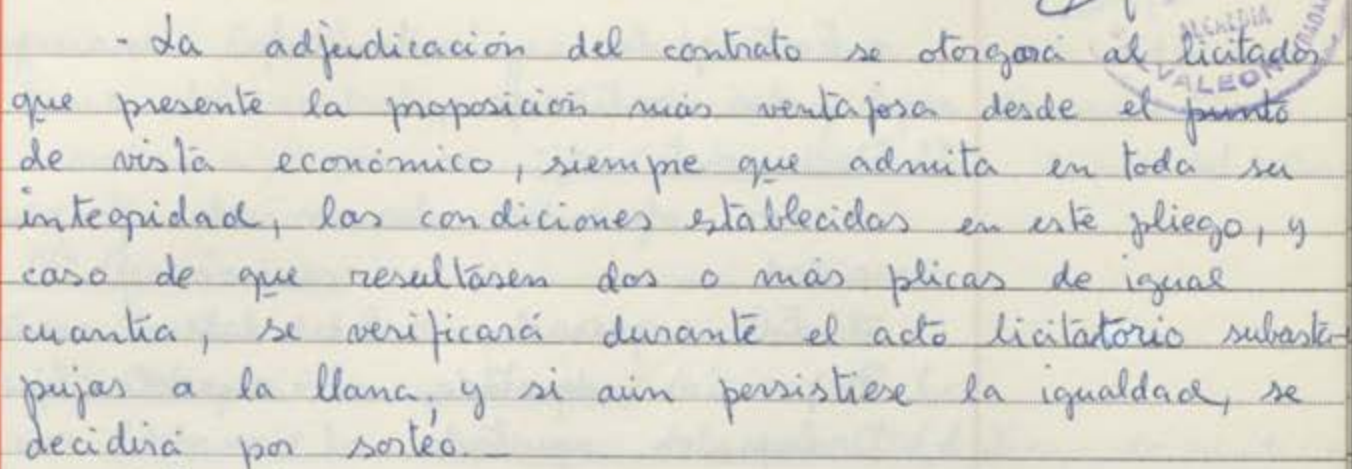 ALCALDIA
VALEON
- La adjudicación del contrato se otorgará al licitador
que presente la proposición más ventajosa desde el punto
de vista económico, siempre que admita en toda su
integridad, las condiciones establecidas en este pliego, y
caso de que resultasen dos o más plicas de igual
cuantía, se verificará durante el acto licitatorio subasta-
pujas a la llana, y si aún persistiese la igualdad, se
decidirá por sorteo.-